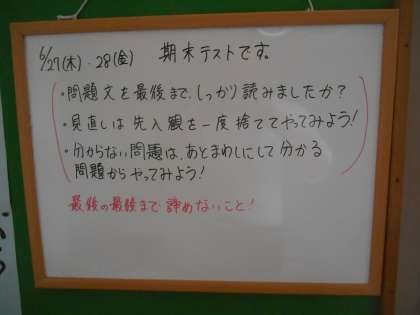 6/27(木)・28(金) 期末テストです。
・問題文を最後まで、しっかり読みましたか?
・見直しは先入観を一度捨ててやってみよう!
・分からない問題は、あとまわしにして分かる
問題からやってみよう!
最後の最後まで諦めないこと!